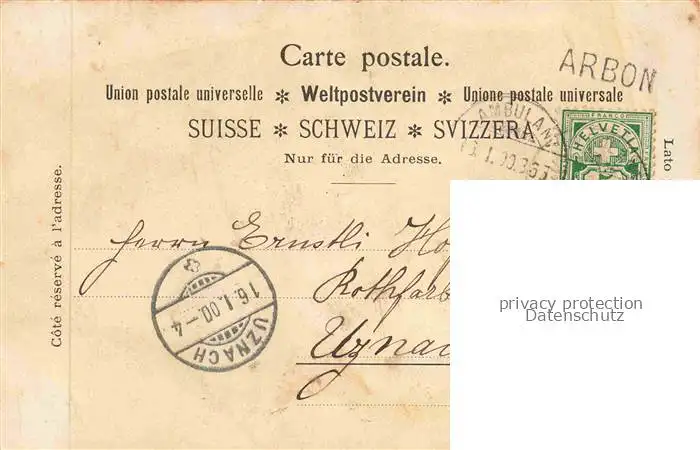 Carte postale.
ARBON
Union postale universelle ✻ Weltpostverein ✻ Unione postale universale
SUISSE ✻ SCHWEIZ ✻ SVIZZERA
Nur für die Adresse.
AMBULANT
FRANCO
HELVETIA
Côté réservé à l'adresse.
Lato
Herrn Ernstli Ho
Rothfarb
Uznac
16.I.00.-4
UZNACH
privacy protection
Datenschutz